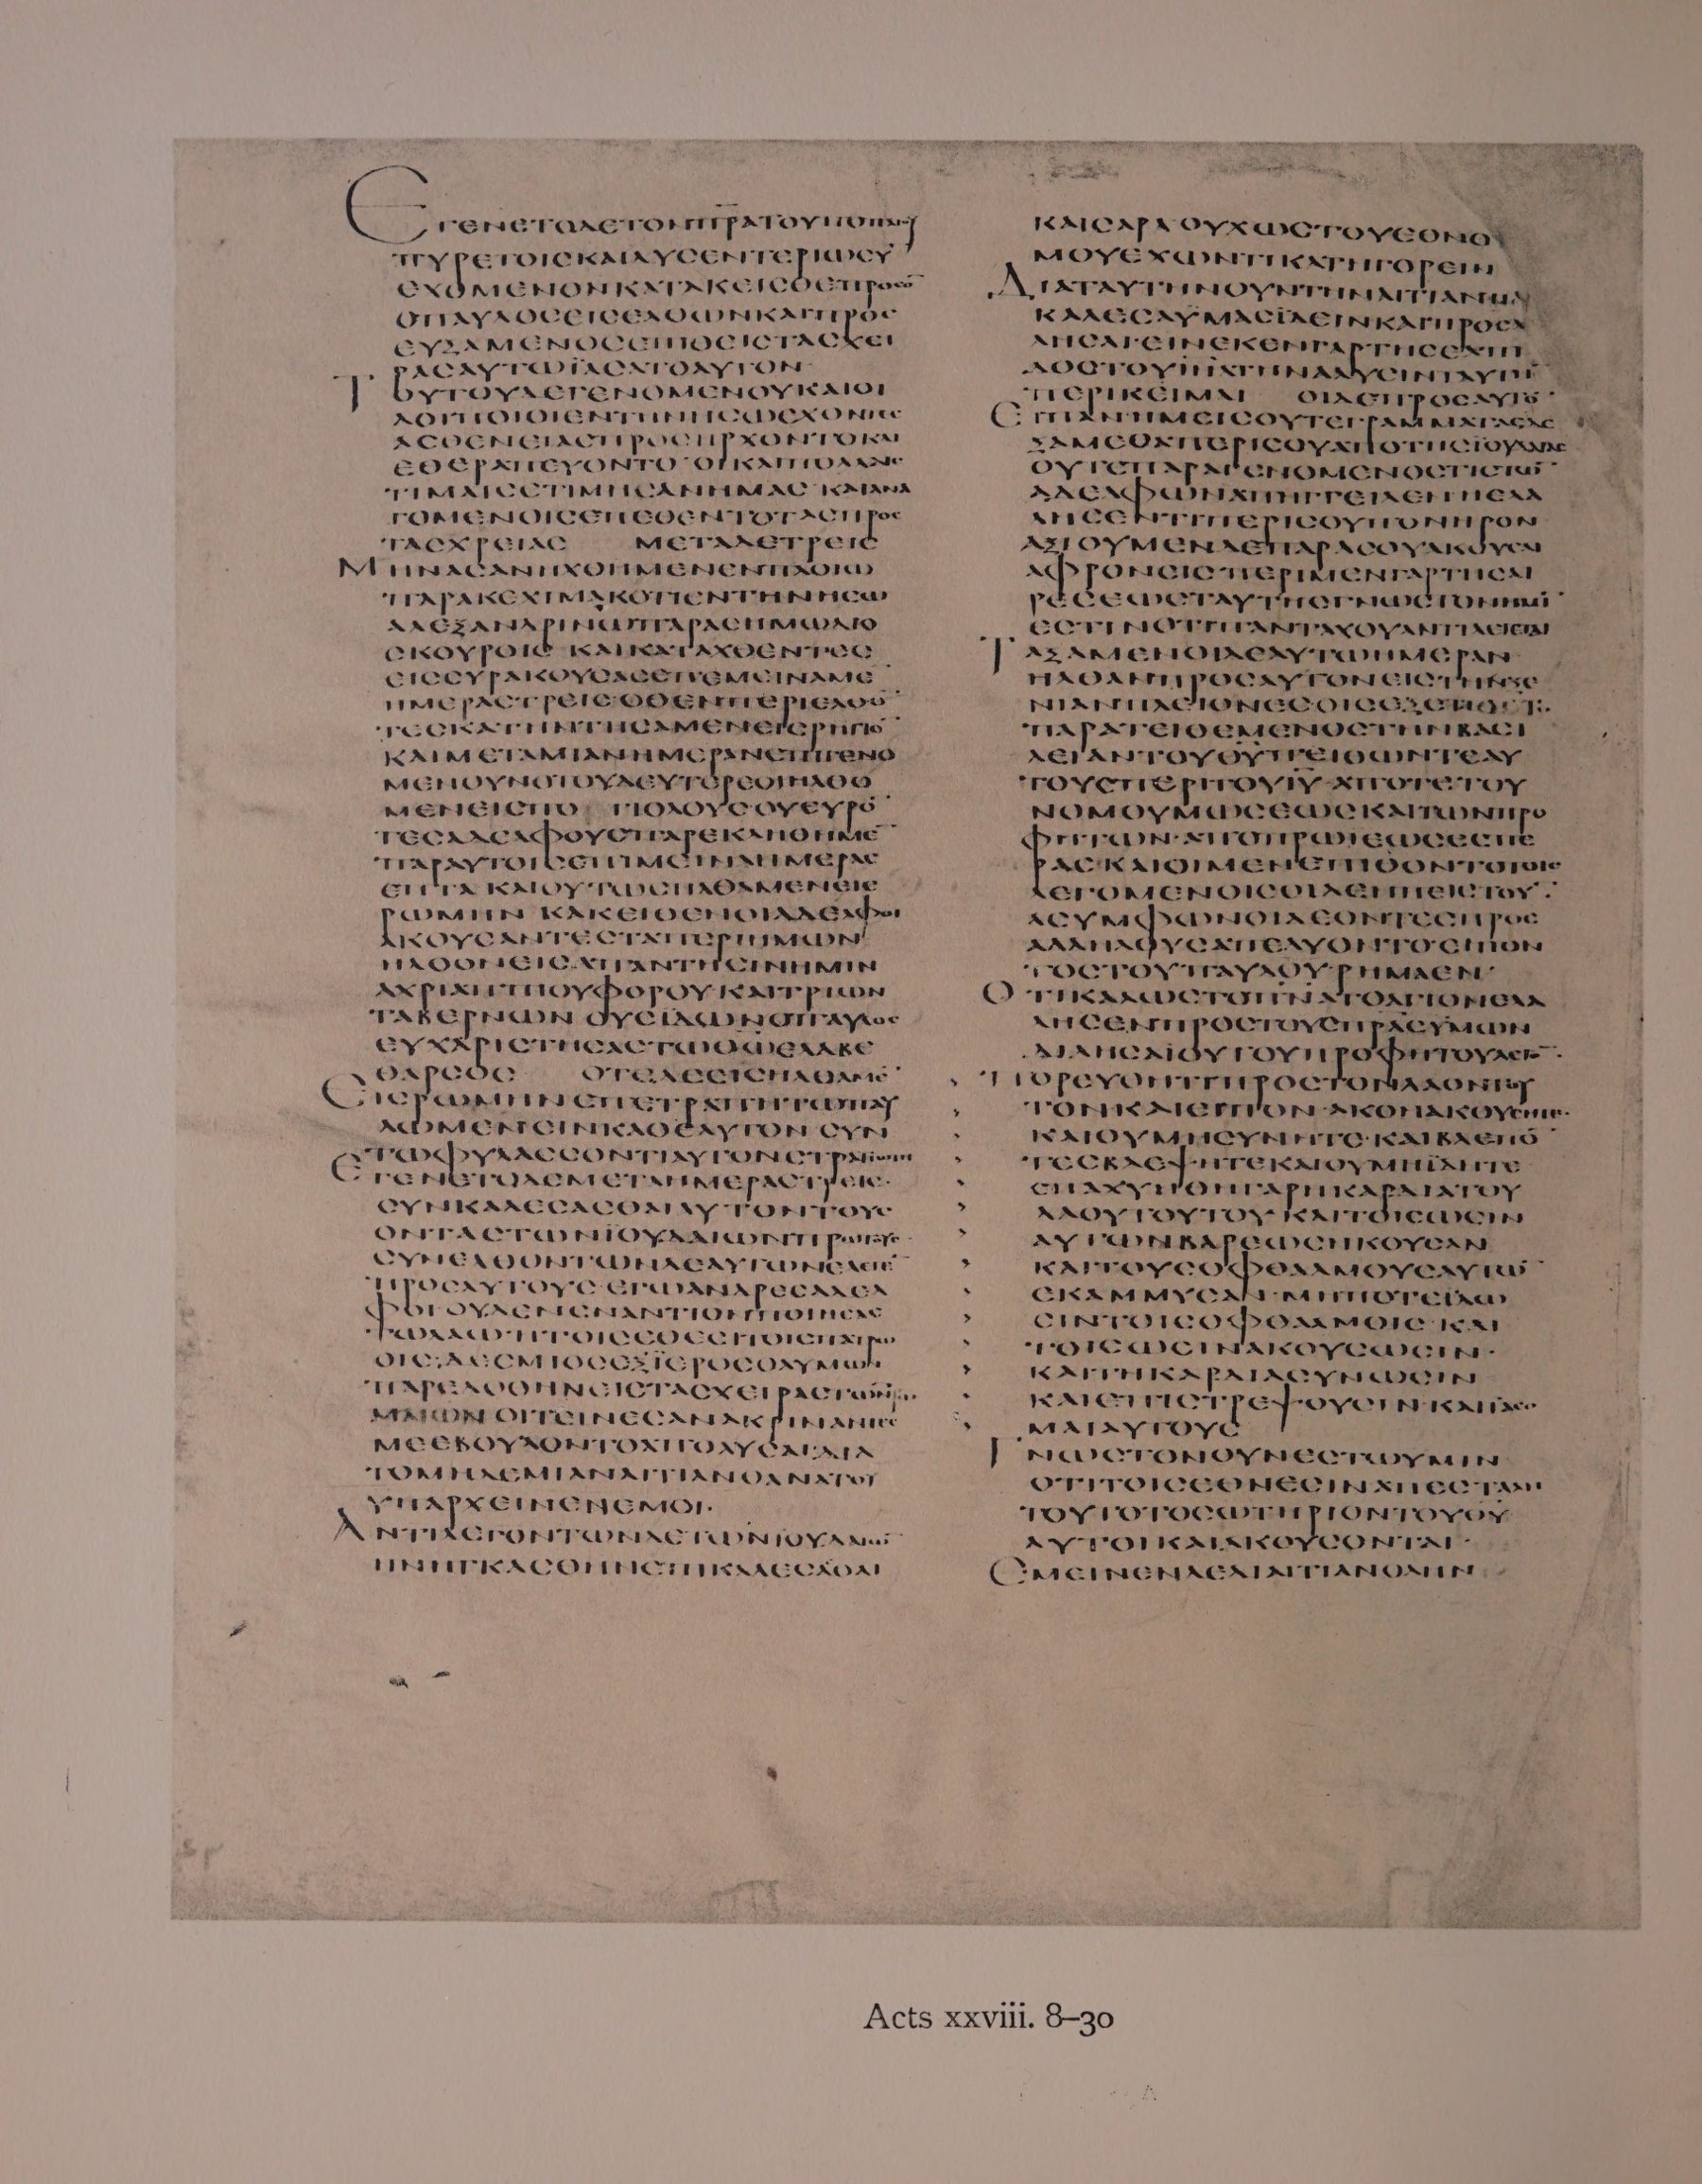 ΕΓΕΝΕΤΟΔΕΤΟΝΠΡΑΤΟΥΠΟΠΛΙΟΥ
ΠΥΡΕΤΟΙϹΚΑΙΔΥϹΕΝΤΕΡΙΩϹΥ
ΕΧΟΜΕΝΟΝΚΑΤΑΚΕΙϹΘΕΠΡΟϹΟ̅
ΟΠΑΥΛΟϹΕΙϹΕΛΘΩΝΚΑΙΠΡΟϹ
ΕΥΞΑΜΕΝΟϹΕΠΙΘΕΙϹΤΑϹΧΕΙ
ΡΑϹΑΥΤΩΪΑϹΑΤΟΑΥΤΟΝ
ΤΟΥΤΟΥΔΕΓΕΝΟΜΕΝΟΥΚΑΙΟΙ
ΛΟΙΠΟΙΟΙΕΝΤΗΝΗϹΩΕΧΟΝΤΕϹ
ΑϹΘΕΝΕΙΑϹΠΡΟϹΗΡΧΟΝΤΟΚΑΙ
ΕΘΕΡΑΠΕΥΟΝΤΟ·ΟΙΚΑΙΠΟΛΛΑΙϹ
ΤΙΜΑΙϹΕΤΙΜΗϹΑΝΗΜΑϹ·ΚΑΙΑΝΑ
ΓΟΜΕΝΟΙϹΕΠΕΘΕΝΤΟΤΑϹΠΡΟϹ
ΤΑϹΧΡΕΙΑϹ ΜΕΤΑΔΕΤΡΕΙϹ
ΜΗΝΑϹΑΝΗΧΘΗΜΕΝΕΝΠΛΟΙΩ
ΠΑΡΑΚΕΧΙΜΑΚΟΤΙΕΝΤΗΝΗϹΩ
ΑΛΕΞΑΝΔΡΙΝΩΠΑΡΑϹΗΜΩΔΙΟ
ϹΚΟΥΡΟΙϹ ΚΑΙΚΑΤΑΧΘΕΝΤΕϹ
ΕΙϹϹΥΡΑΚΟΥϹΑϹΕΠΕΜΕΙΝΑΜΕ̅
ΗΜΕΡΑϹΤΡΕΙϹ·ΟΘΕΝΠΕΡΙΕΛΘΟ̅
ΤΕϹΚΑΤΗΝΤΗϹΑΜΕΝΕΙϹΡΗΓΙΟ̅
ΚΑΙΜΕΤΑΜΙΑΝΗΜΕΡΑΝΕΠΙΓΕΝΟ
ΜΕΝΟΥΝΟΤΟΥΔΕΥΤΕΡΕΟΙΗΛΘΟ
ΜΕΝΕΙϹΠΟΤΙΟΛΟΥϹΟΥΕΥΡΟ̅
ΤΕϹΑΔΕΛΦΟΥϹΠΑΡΕΚΛΗΘΗΜΕ̅
ΠΑΡΑΥΤΟΙϹΕΠΙΜΕΙΝΑΙΗΜΕΡΑϹ
ΕΠΤΑ ΚΑΙΟΥΤΩϹΗΛΘΑΜΕΝΕΙϹ
ΡΩΜΗΝ ΚΑΚΕΙΘΕΝΟΙΑΔΕΛΦΟΙ
ΑΚΟΥϹΑΝΤΕϹΤΑΠΕΡΙΗΜΩΝ
ΗΛΘΟΝΕΙϹΑΠΑΝΤΗϹΙΝΗΜΙΝ
ΑΧΡΙΑΠΠΙΟΥΦΟΡΟΥΚΑΙΤΡΙΩΝ
ΤΑΒΕΡΝΩΝ ΟΥϹΙΔΩΝΟΠΑΥΛΟϹ
ΕΥΧΑΡΙϹΤΗϹΑϹΤΩΘΩΕΛΑΒΕ
ΘΑΡϹΟϹ ΟΤΕΔΕΕΙϹΗΛΘΑΜΕ̅
ΕΙϹΡΩΜΗΝΕΠΕΤΡΑΠΗΤΩΠΑΥ
ΛΩΜΕΝΕΙΝΚΑΘΕΑΥΤΟΝϹΥΝ
ΤΩΦΥΛΑϹϹΟΝΤΙΑΥΤΟΝϹΤΡΑΤΙΩΤΗ
ΕΓΕΝΕΤΟΔΕΜΕΤΑΗΜΕΡΑϹΤΡΕΙϹ·
ϹΥΝΚΑΛΕϹΑϹΘΑΙΑΥΤΟΝΤΟΥϹ
ΟΝΤΑϹΤΩΝΪΟΥΔΑΙΩΝΠΡΩΤΟΥϹ
ϹΥΝΕΛΘΟΝΤΩΝΔΕΑΥΤΩΝΕΛΕΓΕ̅
ΠΡΟϹΑΥΤΟΥϹ·ΕΓΩΑΝΔΡΕϹΑΔΕΛ
ΦΟΙΟΥΔΕΝΕΝΑΝΤΙΟΝΠΟΙΗϹΑϹ
ΤΩΛΑΩΗΤΟΙϹΕΘΕϹΙΤΟΙϹΠΑΤΡΩ
ΟΙϹ·ΔΕϹΜΙΟϹΕΞΪΕΡΟϹΟΛΥΜΩΝ
ΠΑΡΕΔΟΘΗΝΕΙϹΤΑϹΧΕΙΡΑϹΤΩΝΡΩ
ΜΑΙΩΝ·ΟΙΤΕΙΝΕϹΑΝΑΚΡΙΝΑΝΤΕϹ
ΜΕΕΒΟΥΛΟΝΤΟΑΠΟΛΥϹΑΙΔΙΑ
ΤΟΜΗΔΕΜΙΑΝΑΙΤΙΑΝΘΑΝΑΤΟΥ
ΥΠΑΡΧΕΙΝΕΝΕΜΟΙ·
ΑΝΤΙΛΕΓΟΝΤΩΝΔΕΤΩΝΙΟΥΔΑΙΩ̅
ΗΝΗΓΚΑϹΘΗΝΕΠΙΚΑΛΕϹΑϹΘΑΙ
ΚΑΙϹΑΡΑ ΟΥΧΩϹΤΟΥΕΘΝΟΥ
ΜΟΥΕΧΩΝΤΙΚΑΤΗΓΟΡΕΙΝ
ΔΙΑΤΑΥΤΗΝΟΥΝΤΗΝΑΙΤΙΑΝ
ΚΑΛΕϹΑΥΜΑϹΪΔΕΙΝΚΑΙΠΡΟϹΛ
ΛΗϹΑΙ·ΕΙΝΕΚΕΝΓΑΡΤΗϹΕΛΠΙ
ΔΟϹΤΟΥΙΗΛΤΗΝΑΛΥϹΙΝΤΑΥΤΗ̅
ΠΕΡΙΚΕΙΜΑΙ ΟΙΔΕΠΡΟϹΑΥΤΟ̅
ΕΙΠΑΝ·ΗΜΕΙϹΟΥΤΕΓΡΑΜΜΑΤΑΕΔΕ
ΞΑΜΕΘΑΠΕΡΙϹΟΥΑΠΟΤΗϹΪΟΥΔΑΙΑϹ
ΟΥΤΕΠΑΡΑΓΕΝΟΜΕΝΟϹΤΙϹΤΩ̅
ΑΔΕΛΦΩΝΑΠΗΓΓΕΙΛΕΝΗΕΛΑ
ΛΗϹΕΝΤΙΠΕΡΙϹΟΥΠΟΝΗΡΟΝ
ΑΞΙΟΥΜΕΝΔΕΠΑΡΑϹΟΥΑΚΟΥϹΑΙ
ΑΦΡΟΝΕΙϹ·ΠΕΡΙΜΕΝΓΑΡΤΗϹΑΙ
ΡΕϹΕΩϹΤΑΥΤΗϹΓΝΩϹΤΟΝΗΜΙ̅
ΕϹΤΙΝΟΤΙΠΑΝΤΑΧΟΥΑΝΤΙΛΕΓΕΤΑΙ
ΤΑΞΑΜΕΝΟΙΔΕΑΥΤΩΗΜΕΡΑΝ
ΗΛΘΑΝΠΡΟϹΑΥΤΟΝΕΙϹΤΗΝΞΕ
ΝΙΑΝΠΛΕΙΟΝΕϹΟΙϹΕΞΕΤΙΘΕΤΟ
ΠΑΡΑΤΕΙΘΕΜΕΝΟϹΤΗΝΒΑϹΙ
ΛΕΙΑΝΤΟΥΘΥΠΕΙΘΩΝΤΕΑΥ
ΤΟΥϹΠΕΡΙΤΟΥΙΥ·ΑΠΟΤΕΤΟΥ
ΝΟΜΟΥΜΩϹΕΩϹΚΑΙΤΩΝΠΡΟ
ΦΗΤΩΝ·ΑΠΟΠΡΩΙΕΩϹΕϹΠΕ
ΡΑϹ·ΚΑΙΟΙΜΕΝΕΠΙΘΟΝΤΟΤΟΙϹ
ΛΕΓΟΜΕΝΟΙϹΟΙΔΕΗΠΙϹΤΟΥ̅
ΑϹΥΜΦΩΝΟΙΔΕΟΝΤΕϹΠΡΟϹ
ΑΛΛΗΛΟΥϹΑΠΕΛΥΟΝΤΟ·ΕΙΠΟΝ
ΤΟϹΤΟΥΠΑΥΛΟΥΡΗΜΑΕΝ·
ΟΤΙΚΑΛΩϹΤΟΠΝΑΤΟΑΓΙΟΝΕΛΑ
ΛΗϹΕΝΠΡΟϹΤΟΥϹΠΡΑϹΥΜΩΝ
ΔΙΑΗϹΑΪΟΥΤΟΥΠΡΟΦΗΤΟΥΛΕΓΟ̅
ΠΟΡΕΥΘΗΤΙΠΡΟϹΤΟΝΛΑΟΝΤΟΥ
ΤΟΝΚΑΙΕΙΠΟΝ·ΑΚΟΗΑΚΟΥϹΗΤΕ·
ΚΑΙΟΥΜΗϹΥΝΗΤΕ·ΚΑΙΒΛΕΠΟ̅
ΤΕϹΒΛΕΨΗΤΕΚΑΙΟΥΜΗΪΔΗΤΕ
ΕΠΑΧΥΝΘΗΓΑΡΗΚΑΡΔΙΑΤΟΥ
ΛΑΟΥΤΟΥΤΟΥ·ΚΑΙΤΟΙϹΩϹΙΝ
ΑΥΤΩΝΒΑΡΕΩϹΗΚΟΥϹΑΝ
ΚΑΙΤΟΥϹΟΦΘΑΛΜΟΥϹΑΥΤΩ̅
ΕΚΑΜΜΥϹΑΝ·ΜΗΠΟΤΕΪΔΩ
ϹΙΝΤΟΙϹΟΦΘΑΛΜΟΙϹ·ΚΑΙ
ΤΟΙϹΩϹΙΝΑΚΟΥϹΩϹΙΝ·
ΚΑΙΤΗΚΑΡΔΙΑϹΥΝΩϹΙΝ
ΚΑΙΕΠΙϹΤΡΕΨΟΥϹΙΝ·ΚΑΙΪΑϹΟ
ΜΑΙΑΥΤΟΥϹ
ΓΝΩϹΤΟΝΟΥΝΕϹΤΩΥΜΙΝ
ΟΤΙΤΟΙϹΕΘΝΕϹΙΝΑΠΕϹΤΑΛΗ
ΤΟΥΤΟΤΟϹΩΤΗΡΙΟΝΤΟΥΘΥ
ΑΥΤΟΙΚΑΙΑΚΟΥϹΟΝΤΑΙ·
ΕΜΕΙΝΕΝΔΕΔΙΑΙΤΙΑΝΟΛΗΝ
Acts xxviii. 8–30